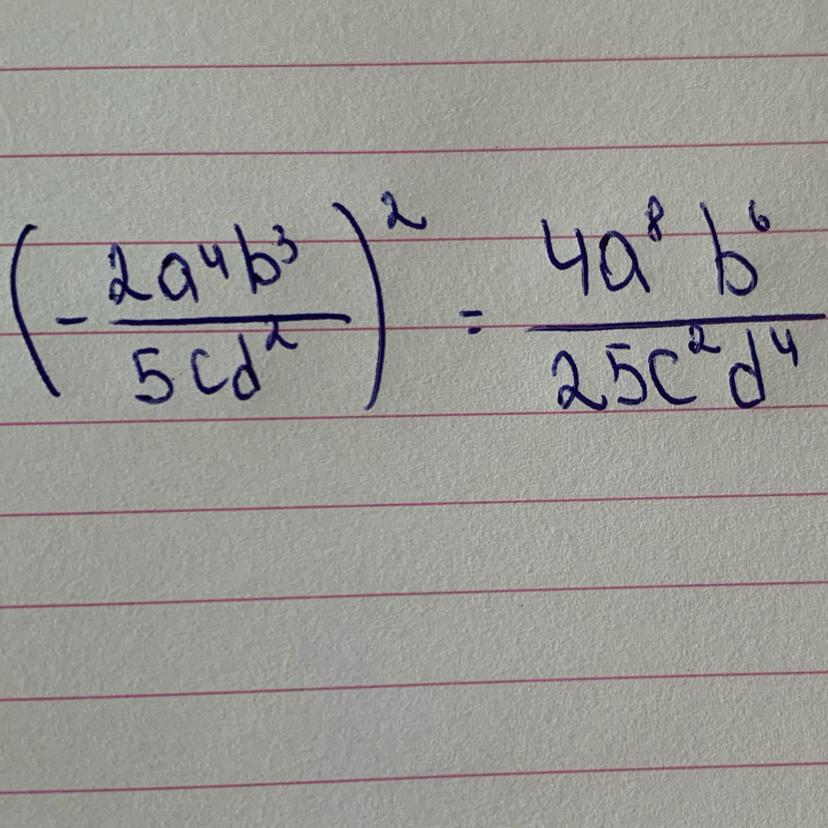 (- 2a⁴b³ / 5cd²)² = 4a⁸ b⁶ / 25c²d⁴